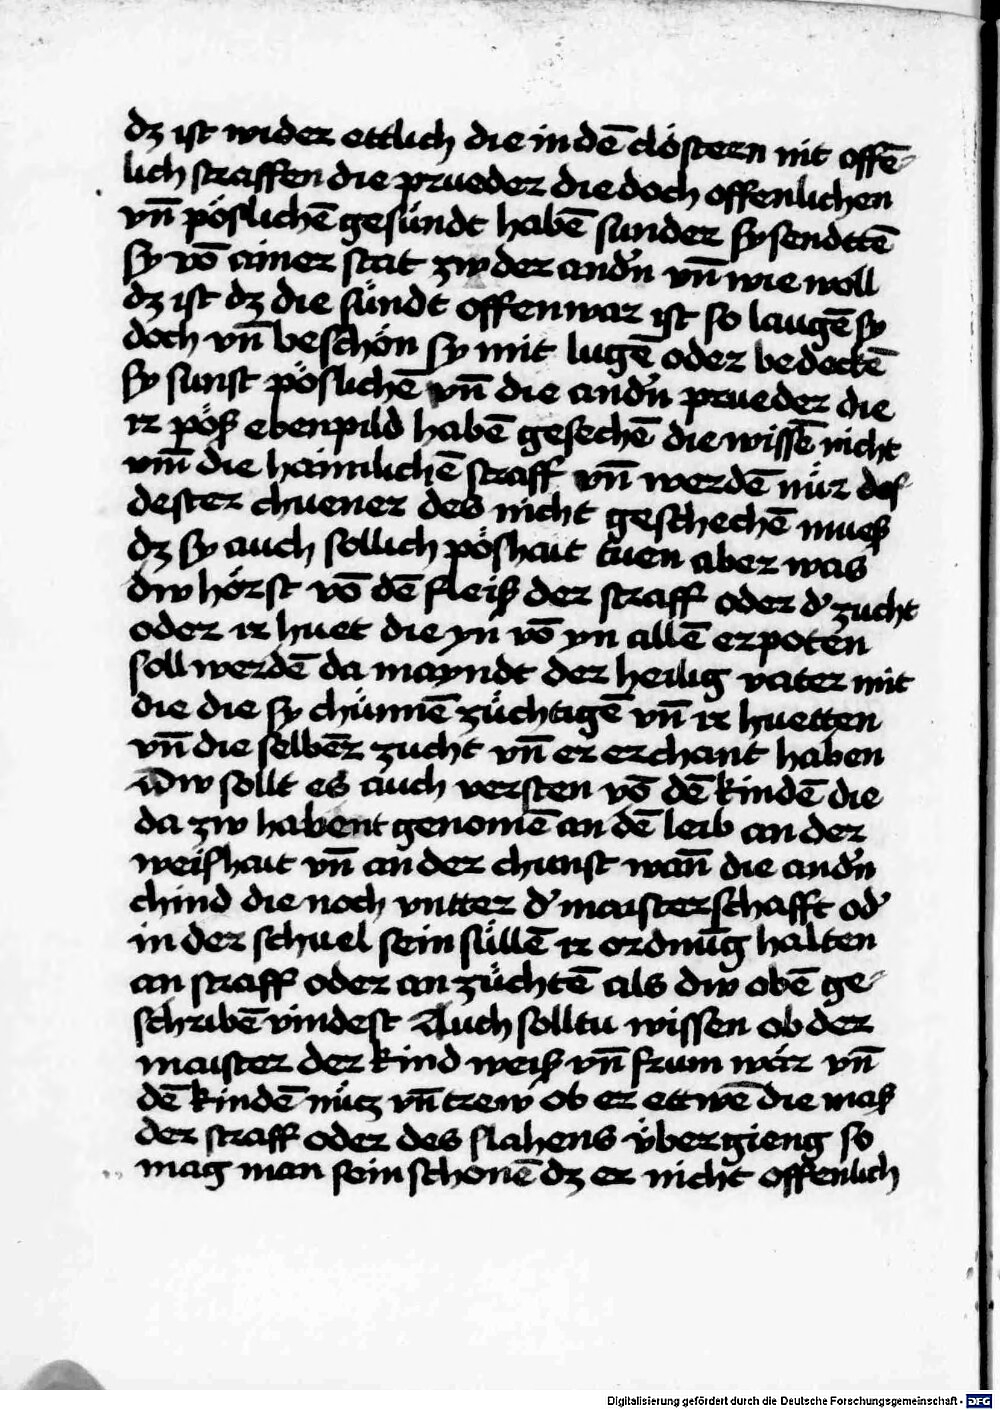 dz ist wider ettlich die in dē clöstern nit offē-
lich straffen die prueder die doch offenlichen
vn̄ pöslichē gesündt habē sunder sy sendttē
sy vō ainer stat zw der andn̄ vn̄ wie woll
dz ist dz die sündt offenwar ist so laugē sy
doch vn̄ beschön sy mit lugē oder bedeckē
sy sunst pöslichē vn̄ die andn̄ prueder die
ir pöß ebenpild habē gesechē die wissē nicht
vm̄ die haimlichē straff vn̄ werdē nür des-
dester chuener des nicht geschechē mueß
dz sy auch sollich pöshait tuen aber was
dw hörst vō dē fleiß der straff oder d' zucht
oder ir huet die yn vō yn allē erpoten
soll werdē da mayndt der heilig vater mit
die die sy chünnē züchtigē vn̄ ir huetten
vn̄ die selbēr zucht vn̄ er erchant haben
Dw sollt es auch versten vō dē kindē die
da zw habent genomē an dē leib an der
weishait vn̄ an der chunst wan̄ die andn̄
chind die noch vntter d' maisterschafft od'
in der schuel sein süllē ir ordnūg halten
an straff oder an züchtē als dw obē ge-
schribē vindest Auch solltu wissen ob der
maister der kind weiß vn̄ frum wär vn̄
dē kindē nütz vn̄ trew ob er ettwē die maß
der straff oder des slahens übergieng so
mag man sein schonē dz er nicht offenlich
Digitalisierung gefördert durch die Deutsche Forschungsgemeinschaft - DFG